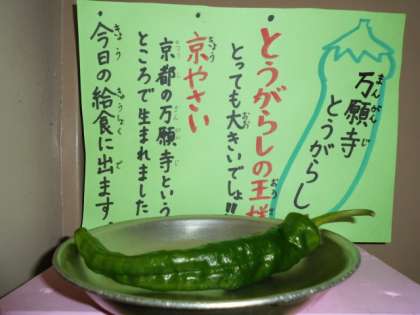 万願寺
とうがらし
とうがらしの王様
とっても大きいでしょ!!
京やさい
京都の万願寺という
ところで生まれました
今日の給食に出ます。